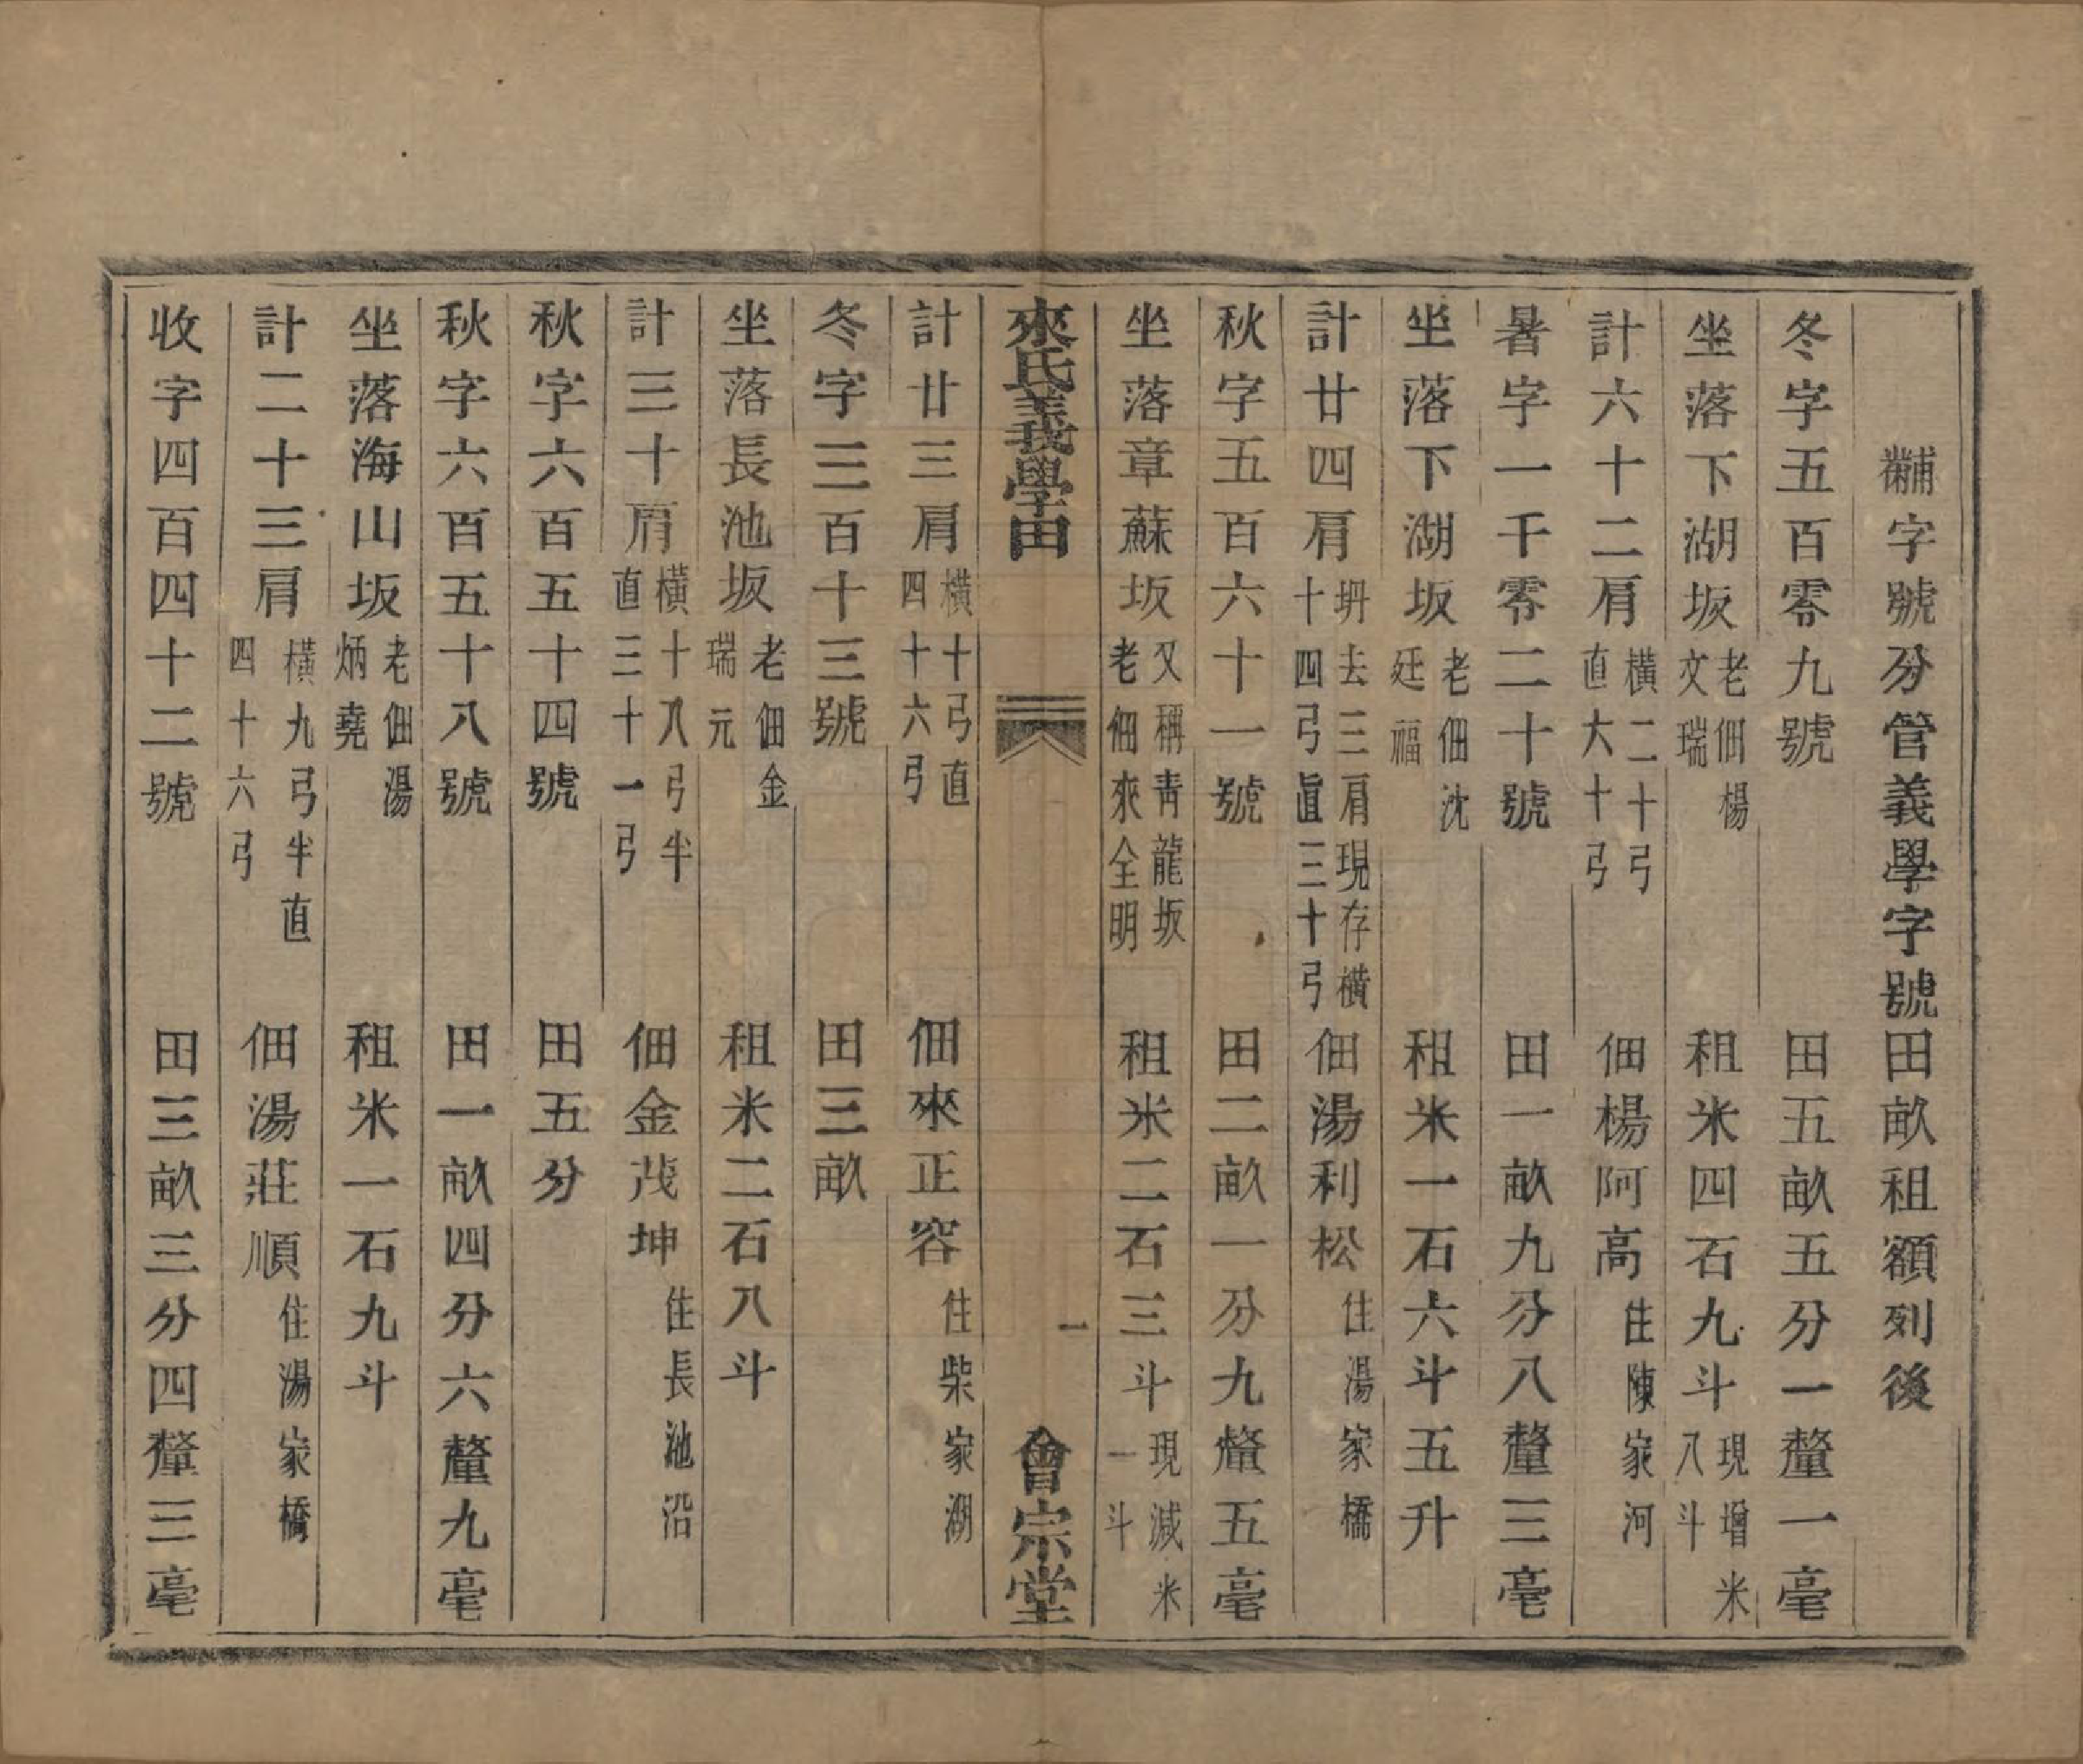 黼字號分管義學字號田畝租額列後
冬字五百零九號　田五畝五分一釐一毫
坐落下湖坂老佃楊文瑞　租米四石九斗現增米八斗
計六十二肩橫二十弓直大十弓　佃楊阿高住陳家河
暑字一千零二十號　田一畝九分八釐三毫
坐落下湖坂老佃沈廷福　租米一石六斗五升
計廿四肩坍去三肩現存橫十四弓直三十弓　佃湯利松住湯家橋
秋字五百六十一號　田二畝一分九釐五毫
坐落章蘇坂又稱靑龍坂老佃來全明　租米二石三斗現減米一斗
來氏義學田　一　會宗堂
計廿三肩橫十弓直四十六弓　佃來正容住柴家湖
冬字三百十三號　田三畝
坐落長池坂老佃金瑞元　租米二石八斗
計三十肩橫十八弓半直三十一弓　佃金茂坤住長池沿
秋字六百五十四號　田五分
秋字六百五十八號　田一畝四分六釐九毫
坐落海山坂老佃湯炳堯　租米一石九斗
計二十三肩橫九弓半直四十六弓　佃湯莊順住湯家橋
收字四百四十二號　田三畝三分四釐三毫